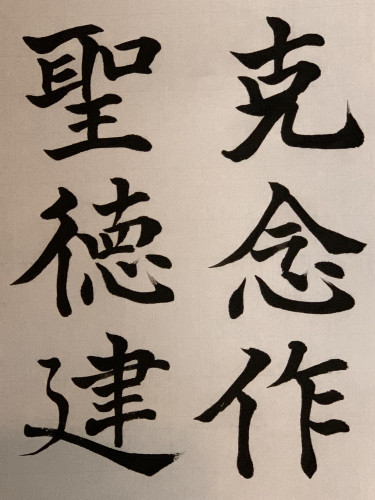 克念作
聖德建